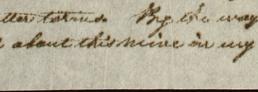 terms. By the way
about this mine in my